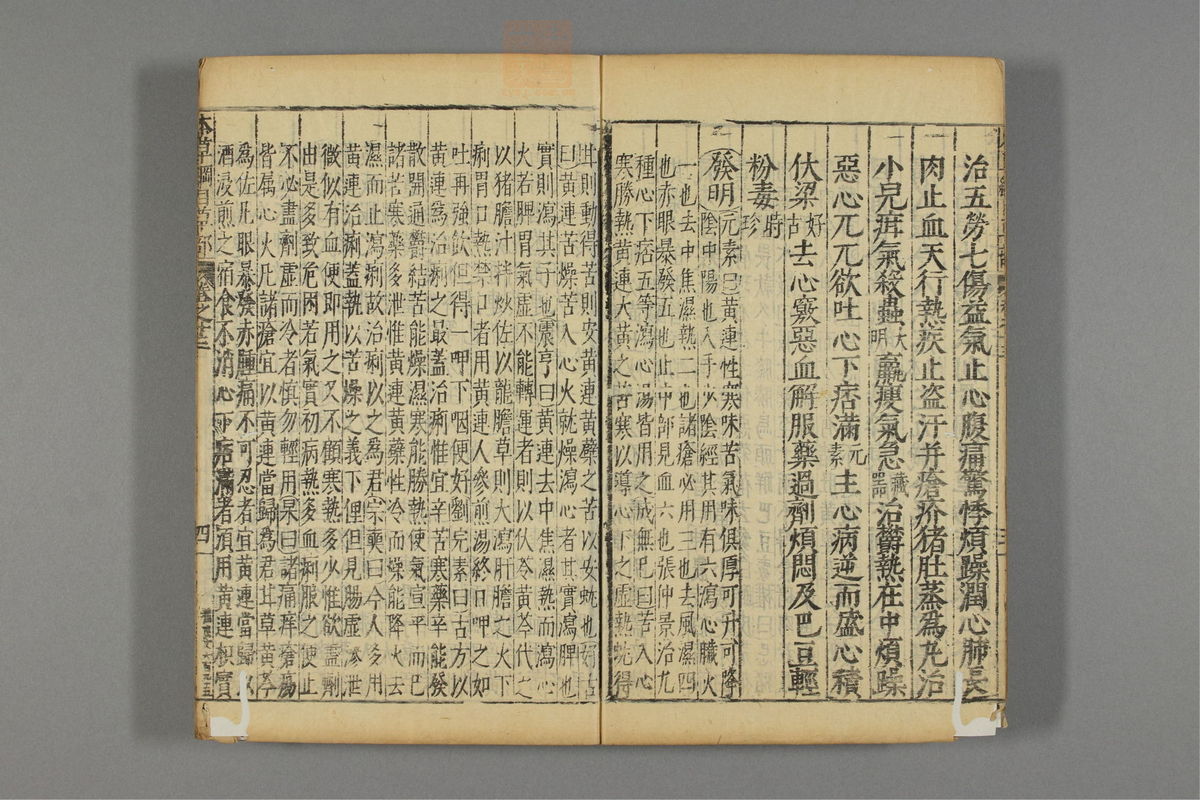 治五勞七傷益氣止心腹痛驚悸煩躁潤心肺長
肉止血天行熱疾止盜汗并瘡疥猪肚蒸為丸治
小兒疳氣殺蟲大明羸瘦氣急藏器治鬱熱在中煩躁
惡心兀兀欲吐心下痞滿元素主心病逆而盛心積
伏梁好古去心竅惡血解服藥過劑煩悶及巴豆輕
粉毒時珍
發明元素曰黃連性寒味苦氣味俱厚可升可降
陰中陽也入手少陰經其用有六瀉心臟火
一也去中焦濕熱二也諸瘡必用三也去風濕四
也赤眼暴發五也止中部見血六也張仲景治九
種心下痞五等瀉心湯皆用之成無己曰苦入心
寒勝熱黃連大黃之苦寒以導心下之虛熱蚘得
甘則動得苦則安黃連黃蘗之苦以安蚘也好古
曰黃連苦燥苦入心火就燥瀉心者其實瀉脾也
實則瀉其子也震亨曰黃連去中焦濕熱而瀉心
火若脾胃氣虛不能轉運者則以伏苓黃芩代之
以猪膽汁拌炒佐以龍膽草則大瀉肝膽之火下
痢胃口熱禁口者用黃連人參煎湯終日呷之如
吐再強飲但得一呷下咽便好劉完素曰古方以
黃連為治痢之最蓋治痢惟宜辛苦寒藥辛能發
散開通鬱結苦能燥濕寒能勝熱使氣宣平而巴
諸苦寒藥多泄惟黃連黃蘗性冷而燥能降火去
濕而止瀉痢故治痢以之為君宗奭曰今人多用
黃連治痢蓋執以苦燥之義下俚但見腸虛滲泄
微似有血便即用之又不顧寒熱多少惟欲盡劑
由是多致危困若氣實初病熱多血痢服之便止
不必盡劑虛而冷者慎勿輕用杲曰諸痛痒瘡瘍
皆屬心火凡諸瘡宜以黃連當歸為君甘草黃芩
為佐凡眼暴發赤腫痛不可忍者宜黃連當歸以
酒浸煎之宿食不消心下痞滿者須用黃連枳實
本草綱目草部
四